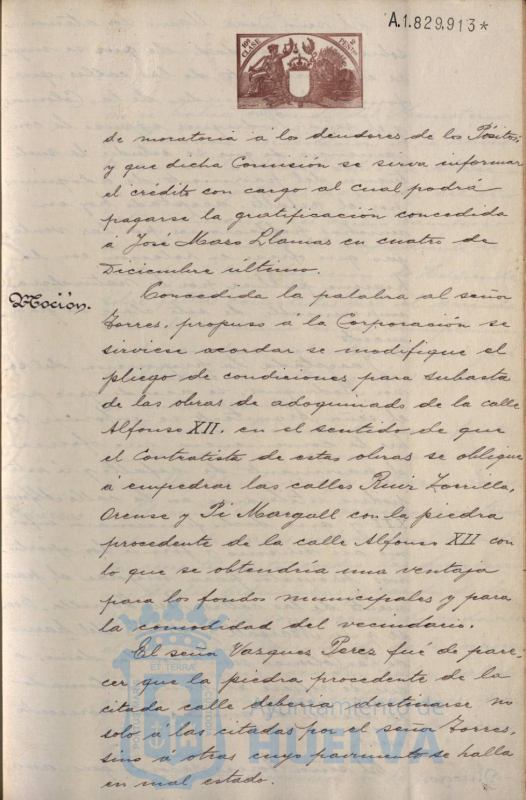 A.1.829.913*
10ª CLASE
2 PESETAS
de moratoria á los deudores de los Pósitos,
y que dicha Comisión se sirva informar
el crédito con cargo al cual podrá
pagarse la gratificación concedida
á José Maro Llamas en cuatro de
Diciembre último.
Moción.
Concedida la palabra al señor
Torres, propuso á la Corporación se
sirviese acordar se modifique el
pliego de condiciones para subasta
de las obras de adoquinado de la calle
Alfonso XII. en el sentido de que
el Contratista de estas obras se obligue
á empedrar las calles Ruiz Zorrilla,
Orense y Pi Margall con la piedra
procedente de la calle Alfonso XII con
lo que se obtendría una ventaja
para los fondos municipales y para
la comodidad del vecindario.
El señor Vazquez Perez fué de pare-
cer que la piedra procedente de la
citada calle debería destinarse no
solo á las citadas por el señor Torres,
sino á otras cuyo pavimento se halla
en mal estado.
Ayuntamiento de
HUELVA
PORTUS MARIS
ET TERRAE
CUSTODIA